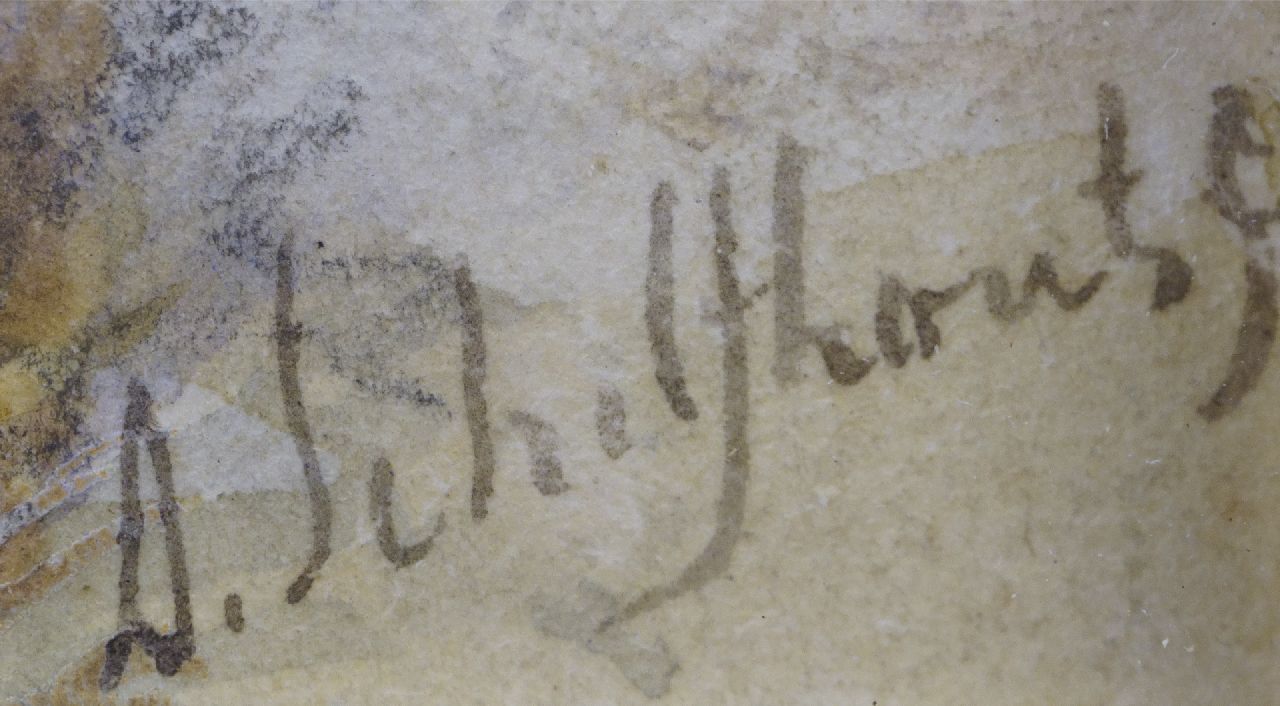 A. Schelfhout